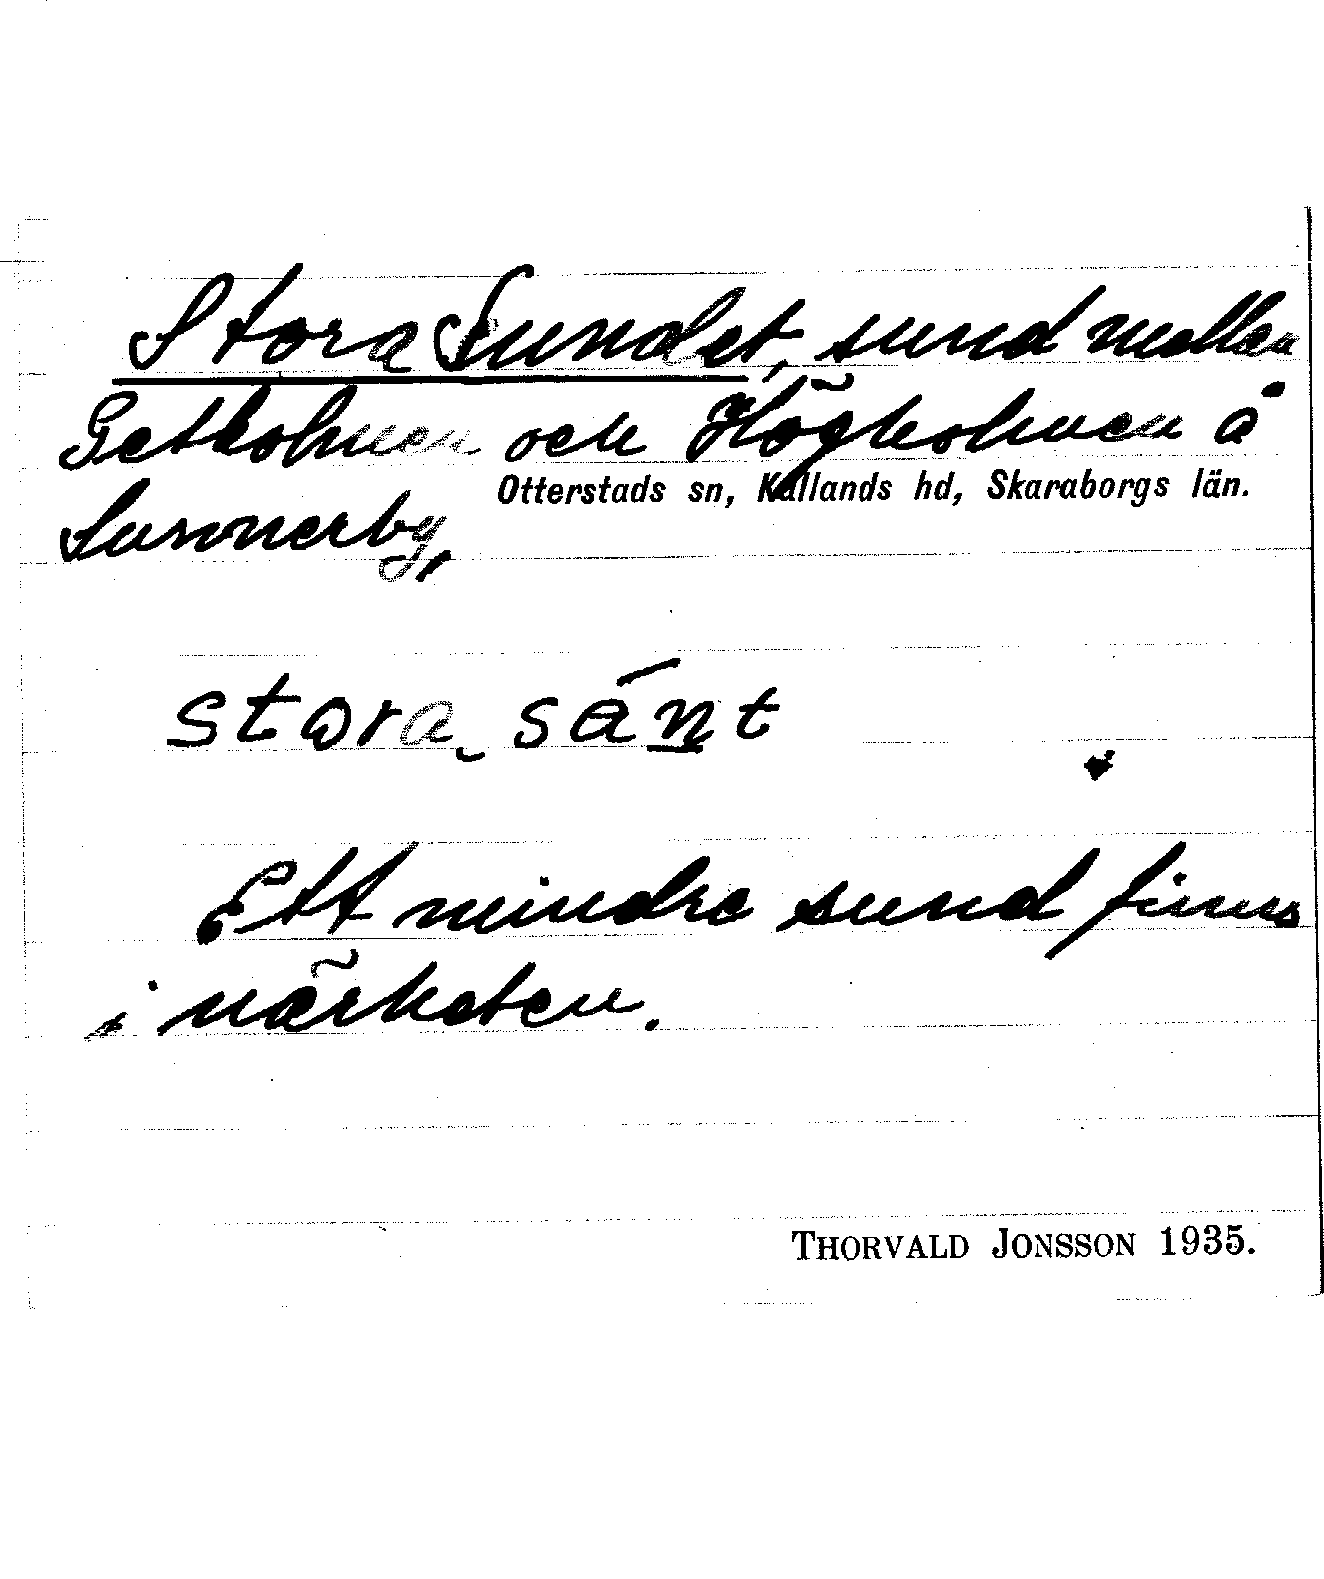 Stora Sundet, sund mellan
Getholmen och Högholmen å
Otterstads sn, Kållands hd, Skaraborgs län.
Sunnerby,
stora sánt
Ett mindre sund finns
i närheten.
THORVALD JONSSON 1935.